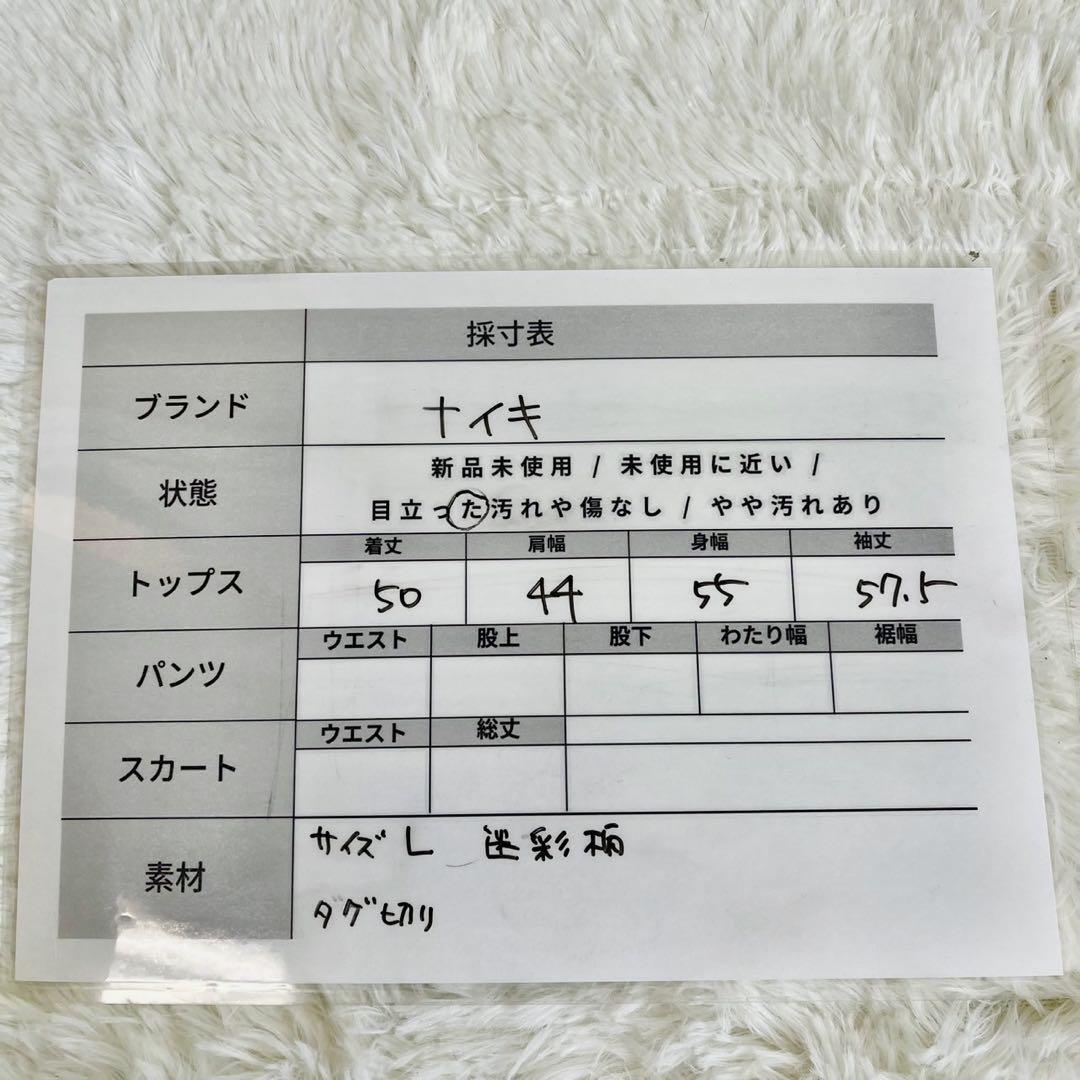 採寸表
ブランド ナイキ
状態 新品未使用 / 未使用に近い /
目立った汚れや傷なし / やや汚れあり
トップス 着丈 肩幅 身幅 袖丈
50 44 55 57.5
パンツ ウエスト 股上 股下 わたり幅 裾幅
スカート ウエスト 総丈
素材 サイズ L 迷彩柄
タグ切り